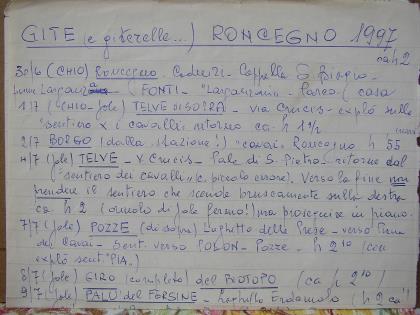 GITE (e giterelle...) RONCEGNO 1997
ca h 2
30/6 (CHIO) Roncegno - - Cappella S. Biagio -
FONTI - "Larganzonia" - Parco (casa
1/7 (Chio-Jole) TELVE DI SOPRA - via Crucis - explò sullo
"sentiero x i cavalli" ritorno ca h 1½
2/7 BORGO (dalla stazione!) "cavai" Roncegno h 55
4/7 (Jole) TELVE - V. Crucis - Pale di S. Pietro - ritorno dal
"sentiero dei cavalli" (c. piccolo errore). Verso la fine non
prendere il sentiero che scende bruscamente sulla destra
ca h 2 (omolo di Jole fermo!) ma proseguire in piano.
7/7 (Jole) POZZE (di sopra) Laghetto delle Prese - verso Cima
dei Cavai - Sent. verso POLON - Pozze - h 2¹⁰ (con
explò sent. PIA.)
8/7 (Jole) GIRO (completo) del BIOTOPO (ca h 2¹⁰)
9/7 (Jole) PALÙ del FERSINE - Laghetto Erdemolo (h 2 ca